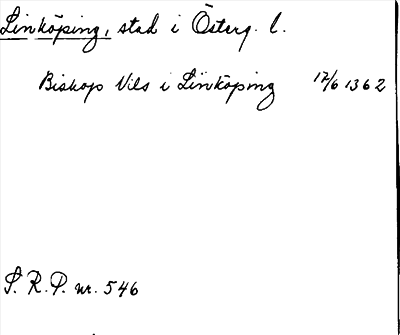 Linköping, stad i Österg. l.
Biskop Nils i Linköping 17/6 1362
S. R. P. nr. 546